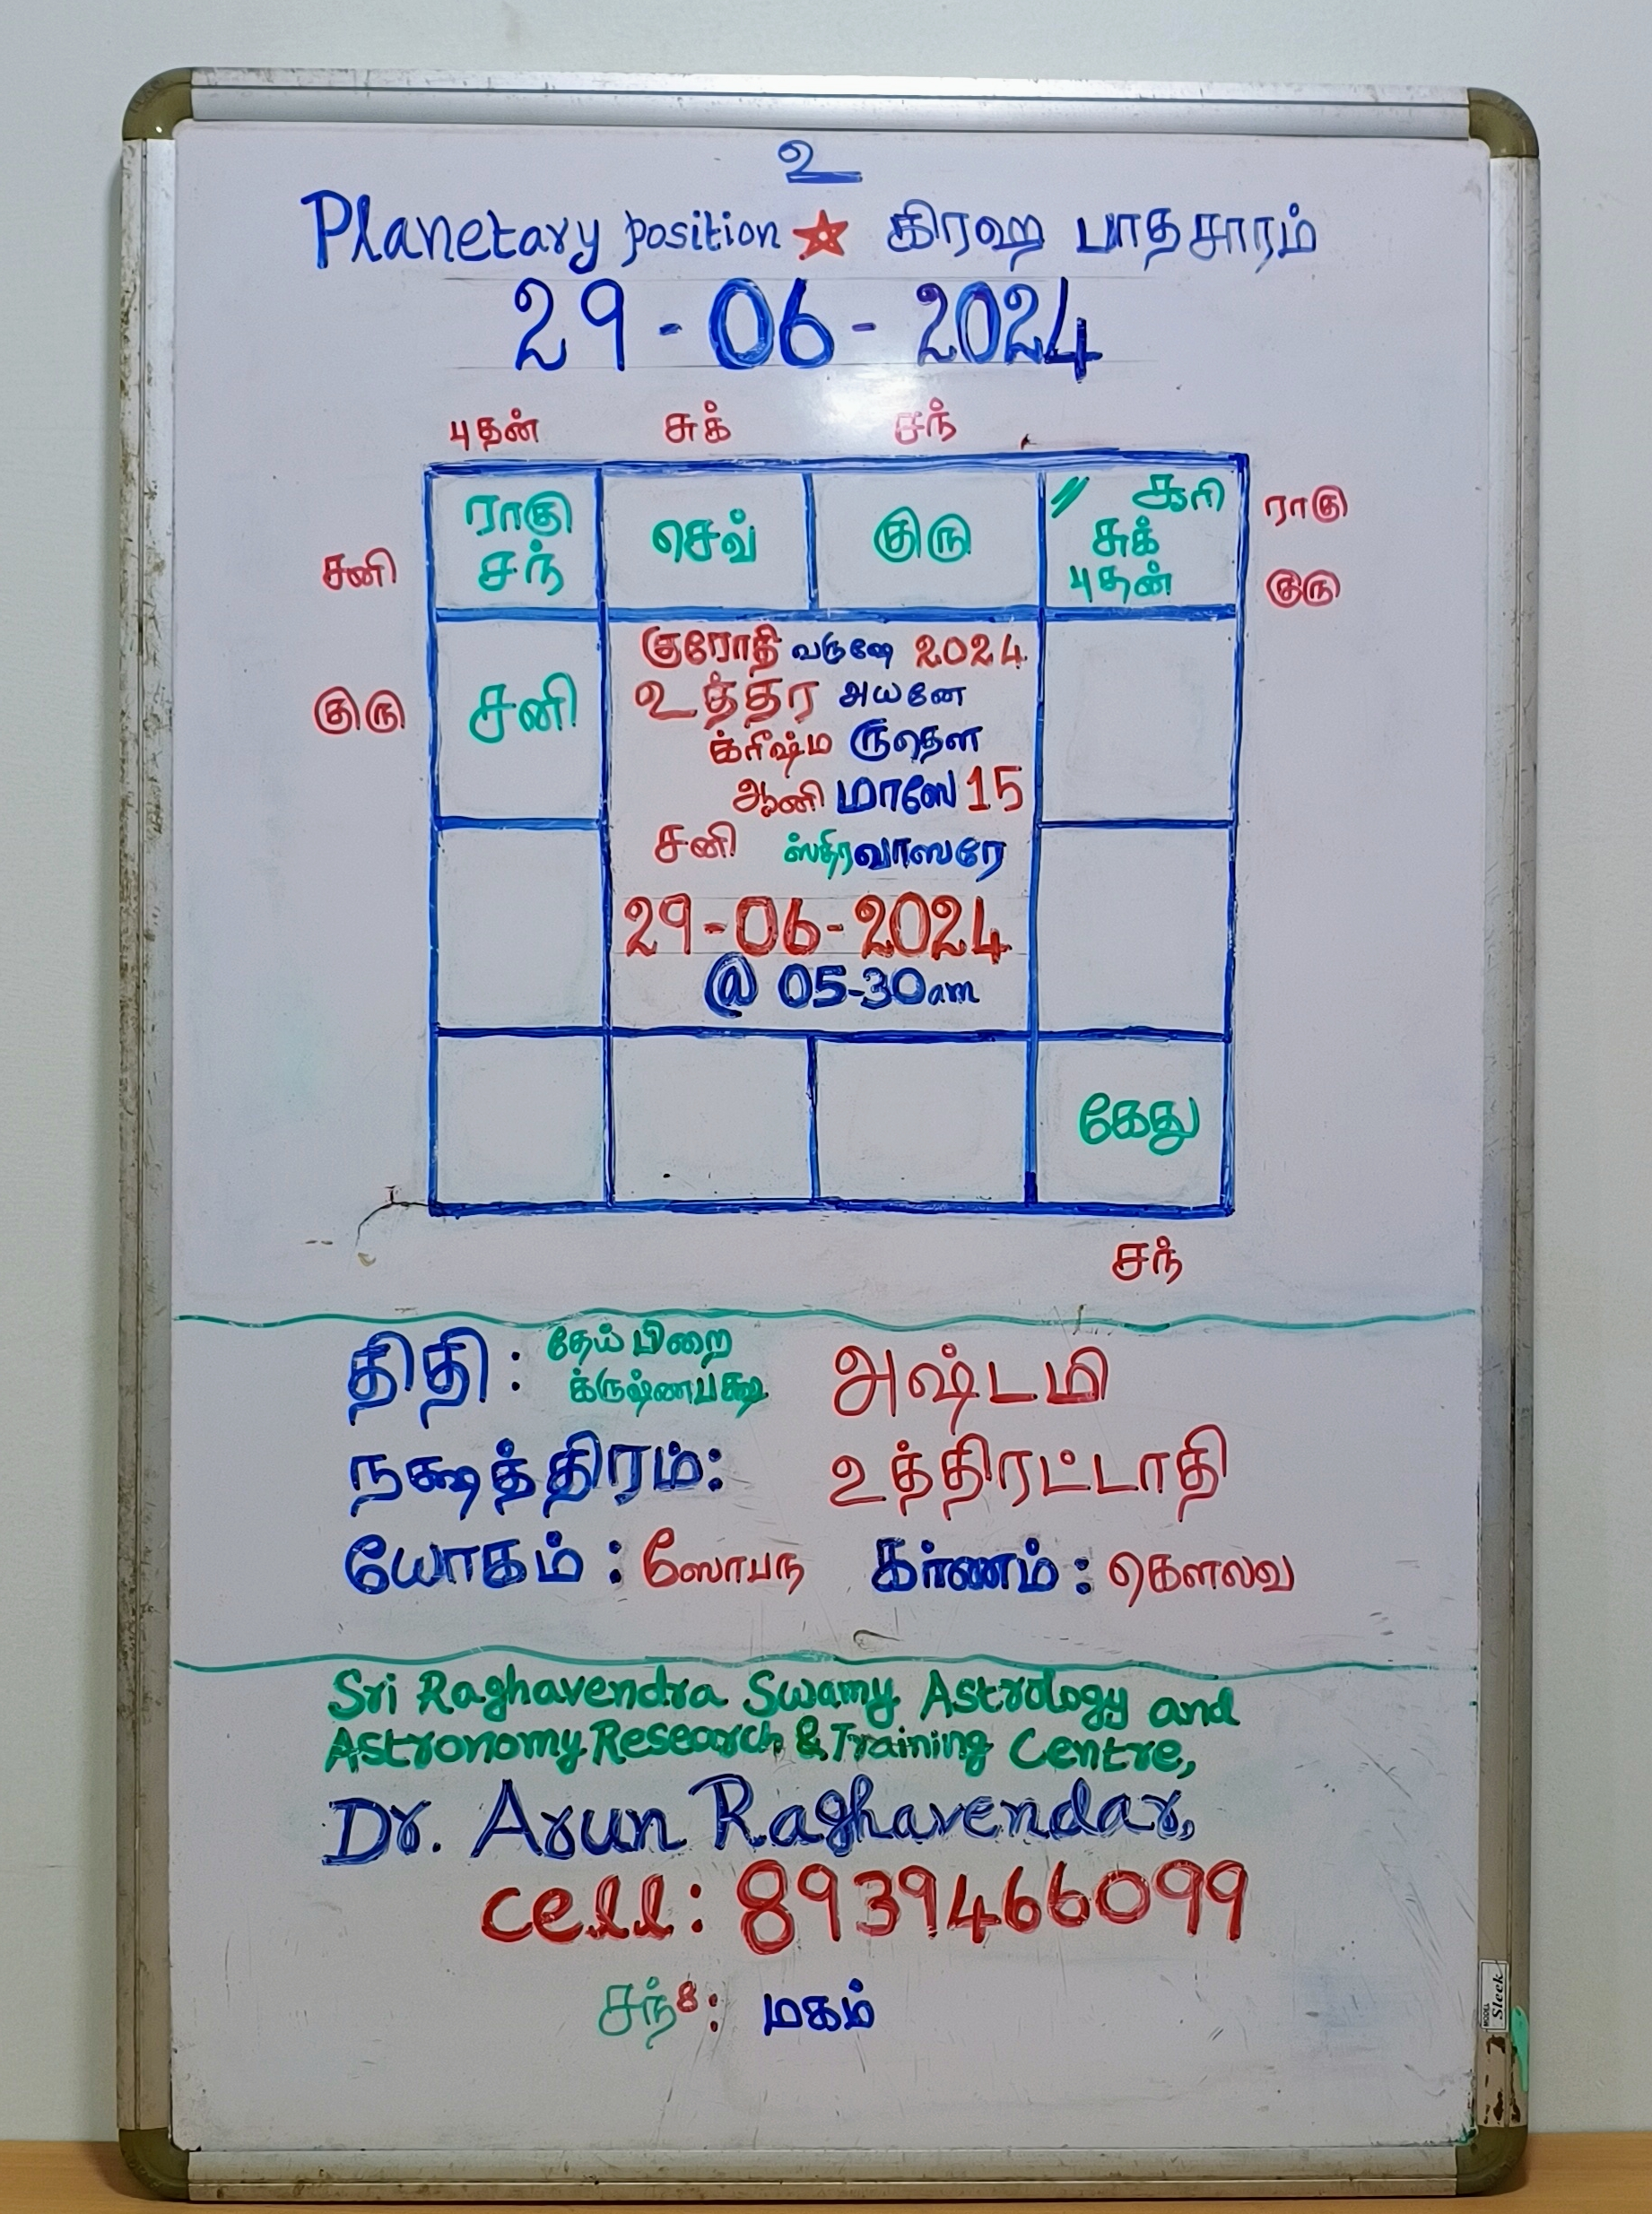 உ
Planetary position ★ கிரஹ பாதசாரம்
29-06-2024
புதன் சுக் சந்
ராகு சந்
செவ்
குரு
// சூரி சுக் புதன்
ராகு
குரு
சனி
குரு
சனி
குரோதி வருஷே 2024
உத்தர அயனே
க்ரீஷ்ம ருதௌ
ஆனி மாஸே 15
சனி ஸ்திரவாஸரே
29-06-2024
@ 05-30am
கேது
சந்
திதி : தேய் பிறை க்ருஷ்ணபக்ஷ அஷ்டமி
நக்ஷத்திரம்: உத்திரட்டாதி
யோகம் : ஸோபந கர்ணம் : கௌலவ
Sri Raghavendra Swamy Astrology and
Astronomy Research & Training Centre,
Dr. Arun Raghavendar,
cell: 8939466099
சந்8: மகம்
MODEL Sleek